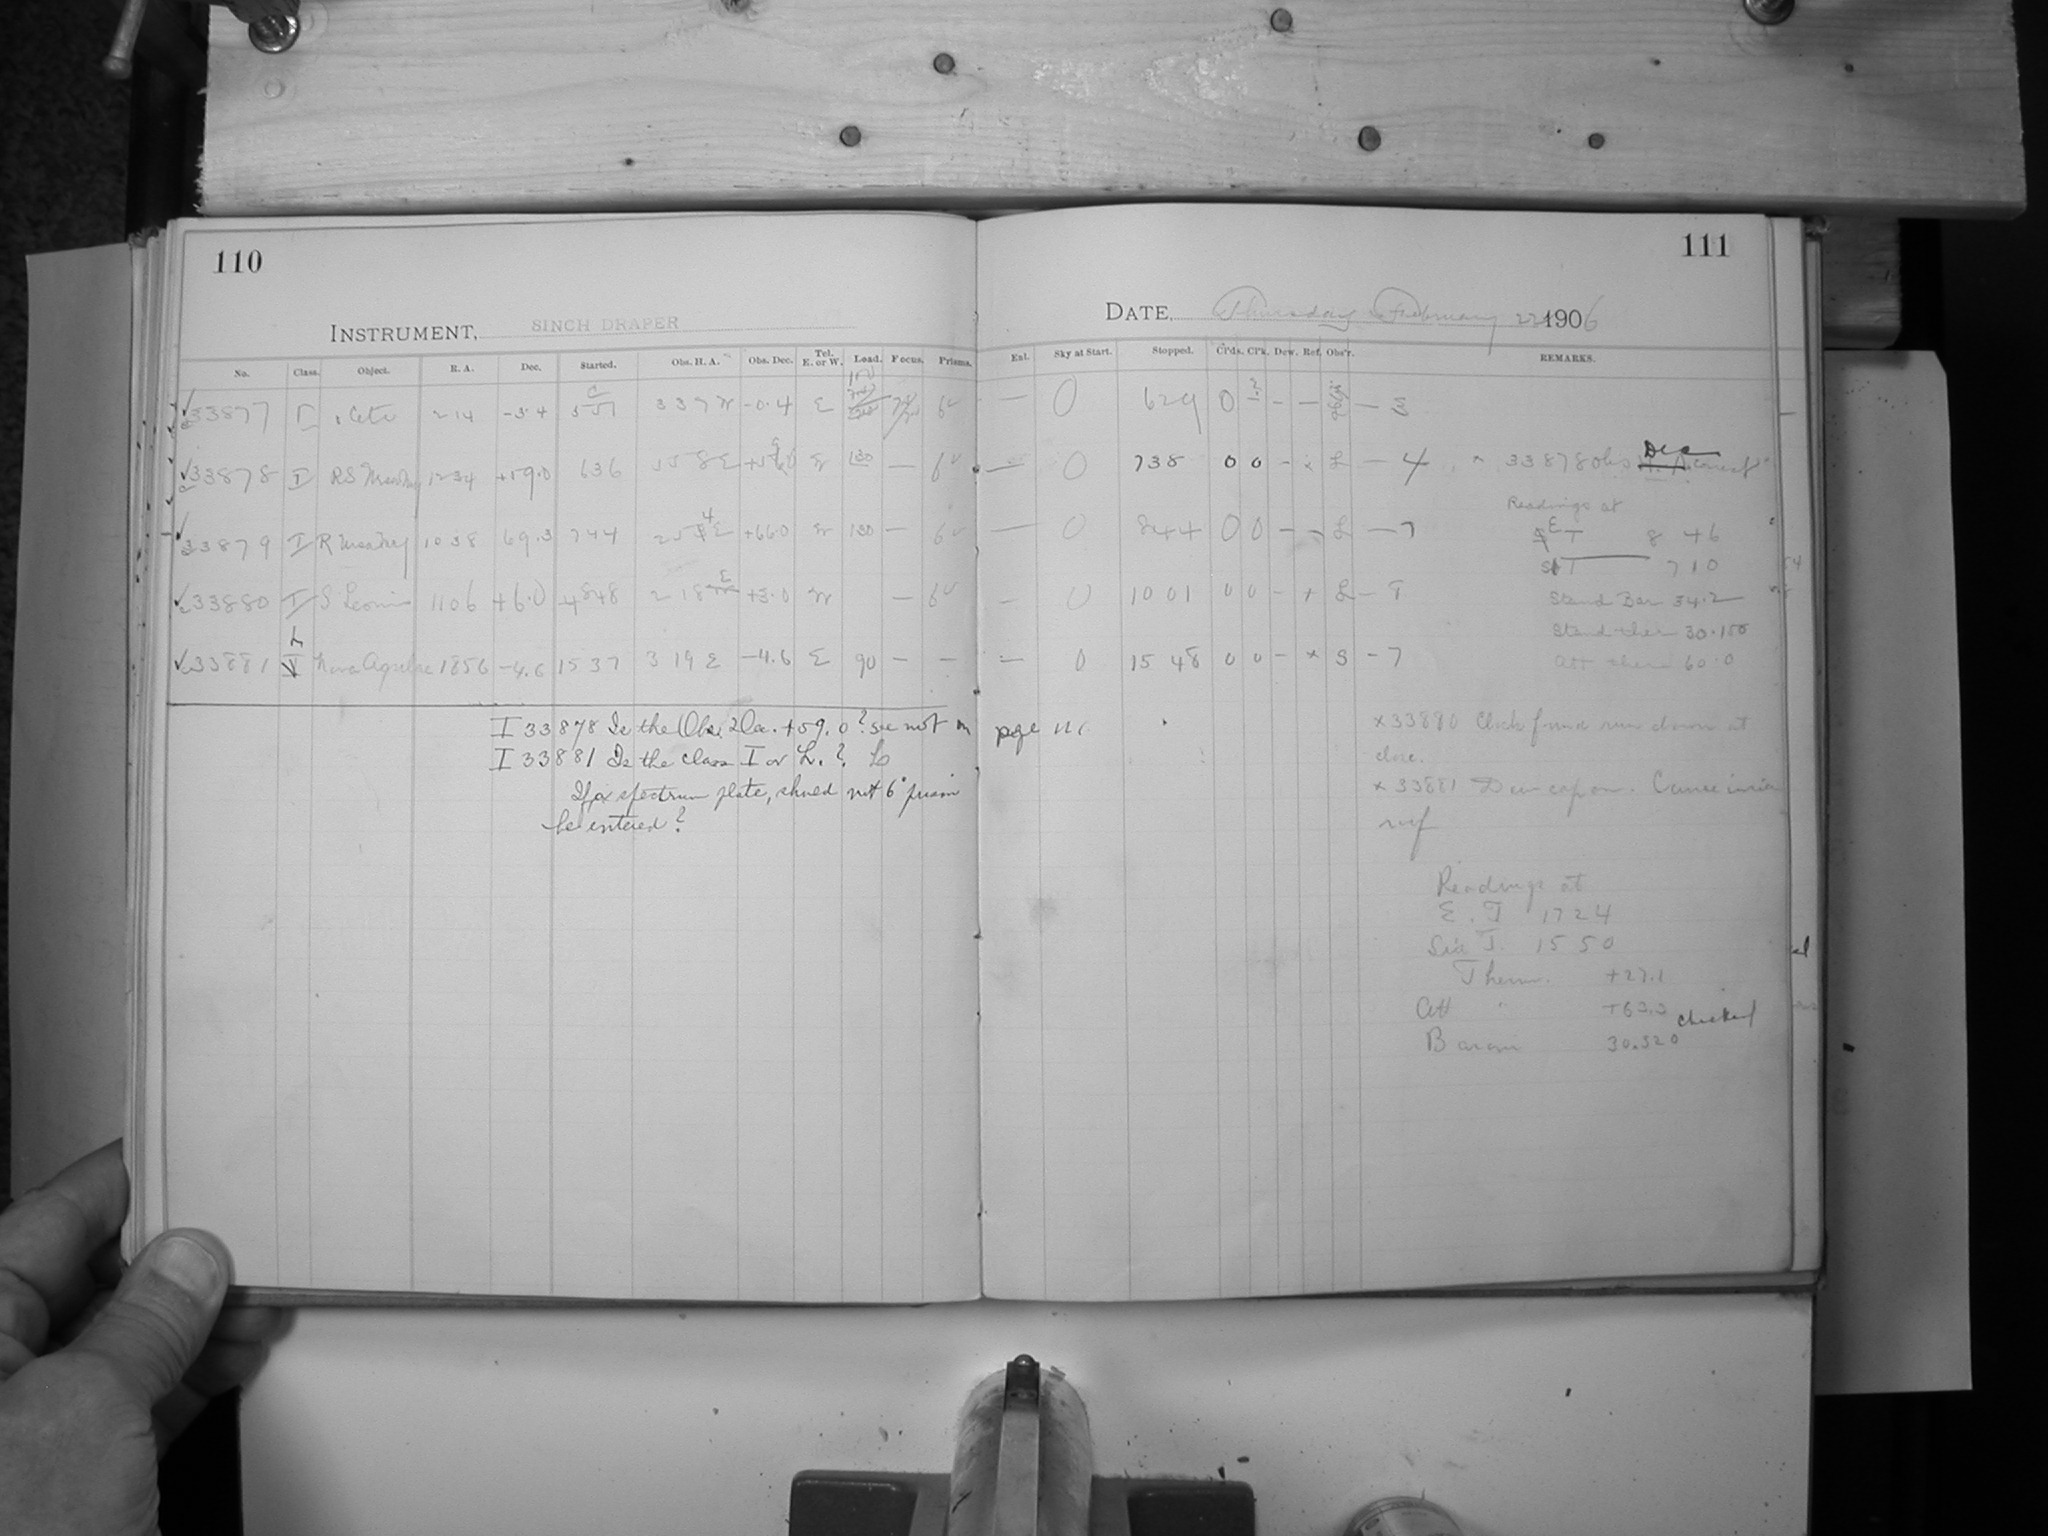 110
INSTRUMENT, 8INCH DRAPER
No. Class. Object. R. A. Dec. Started. Obs. H. A. Obs. Dec. Tel. E. or W. Load. Focus. Prisms.
33877 I Ceti 2 14 -3.4 5 51 3 37 W -0.4 E 6
33878 I RS 12 34 +59.0 6 36 5 58 E W 130 — 6
33879 I R 10 38 69.3 7 44 2 5 4 E +66.0 W 130 — 6
33880 I S Leonis 11 06 +6.0 8 48 2 18 E +3.0 W — 6
33881 L Nova Aquilae 18 56 -4.6 15 37 3 19 E -4.6 E 90 — —
I 33878 Is the Obs. Dec. +59.0? see not on page 111
I 33881 Is the class I or L.? L
If a spectrum plate, should not 6° prism
be entered?
111
DATE, Thursday February 22 1906
Ext. Sky at Start. Stopped. Cl'ds. Cl'k. Dew. Ref. Obs'r. REMARKS.
— 0 6 29 0 - — — 3
— 0 738 0 0 - x L — 4 x 33878 obs Dec correct
— 0 844 0 0 - - L — 7
— 0 10 01 0 0 - x L - 8
— 0 15 48 0 0 - x S - 7
Readings at
E T 8 46
S T 7 10
Stand Bar 34.2
Stand ther 30.150
Att ther 60.0
x 33880 Clock found run down at
close.
x 33881 Dew cap on.
roof
Readings at
E. T 17 24
Sid T. 15 50
Therm. +27.1
Att " +63.3 checked
Barom 30.320